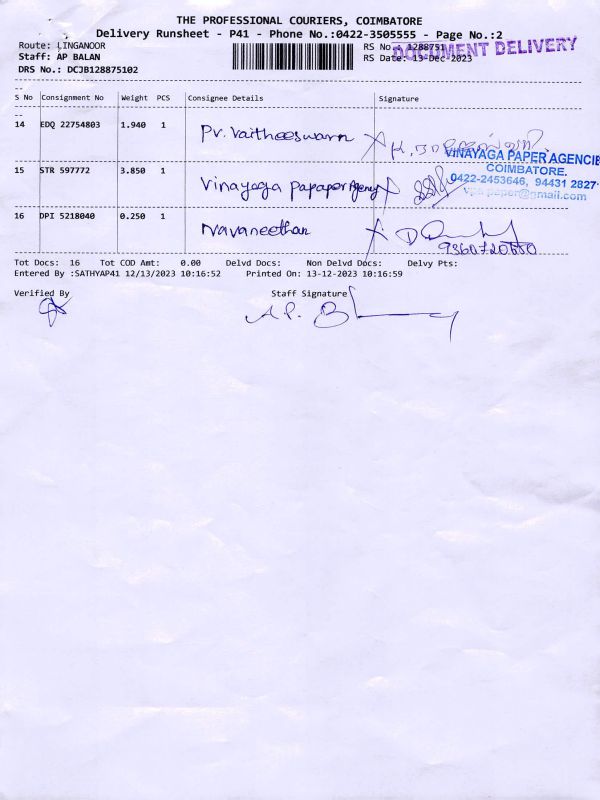 THE PROFESSIONAL COURIERS, COIMBATORE
Delivery Runsheet - P41 - Phone No.:0422-3505555 - Page No.:2
Route: LINGANOOR
RS No.: 1288751
DOCUMENT DELIVERY
Staff: AP BALAN
RS Date: 13-Dec-2023
DRS No.: DCJB128875102
S No Consignment No Weight PCS Consignee Details Signature
14 EDQ 22754803 1.940 1 Pv. Vaitheeswarn
15 STR 597772 3.850 1 Vinayaga Papaper Agency
VINAYAGA PAPER AGENCIE
COIMBATORE.
0422-2453646, 94431 2827
vpa.paper@gmail.com
16 DPI 5218040 0.250 1 Navaneethan
Tot Docs: 16 Tot COD Amt: 0.00 Delvd Docs: Non Delvd Docs: Delvy Pts:
Entered By :SATHYAP41 12/13/2023 10:16:52 Printed On: 13-12-2023 10:16:59
Verified By Staff Signature
A.P. B